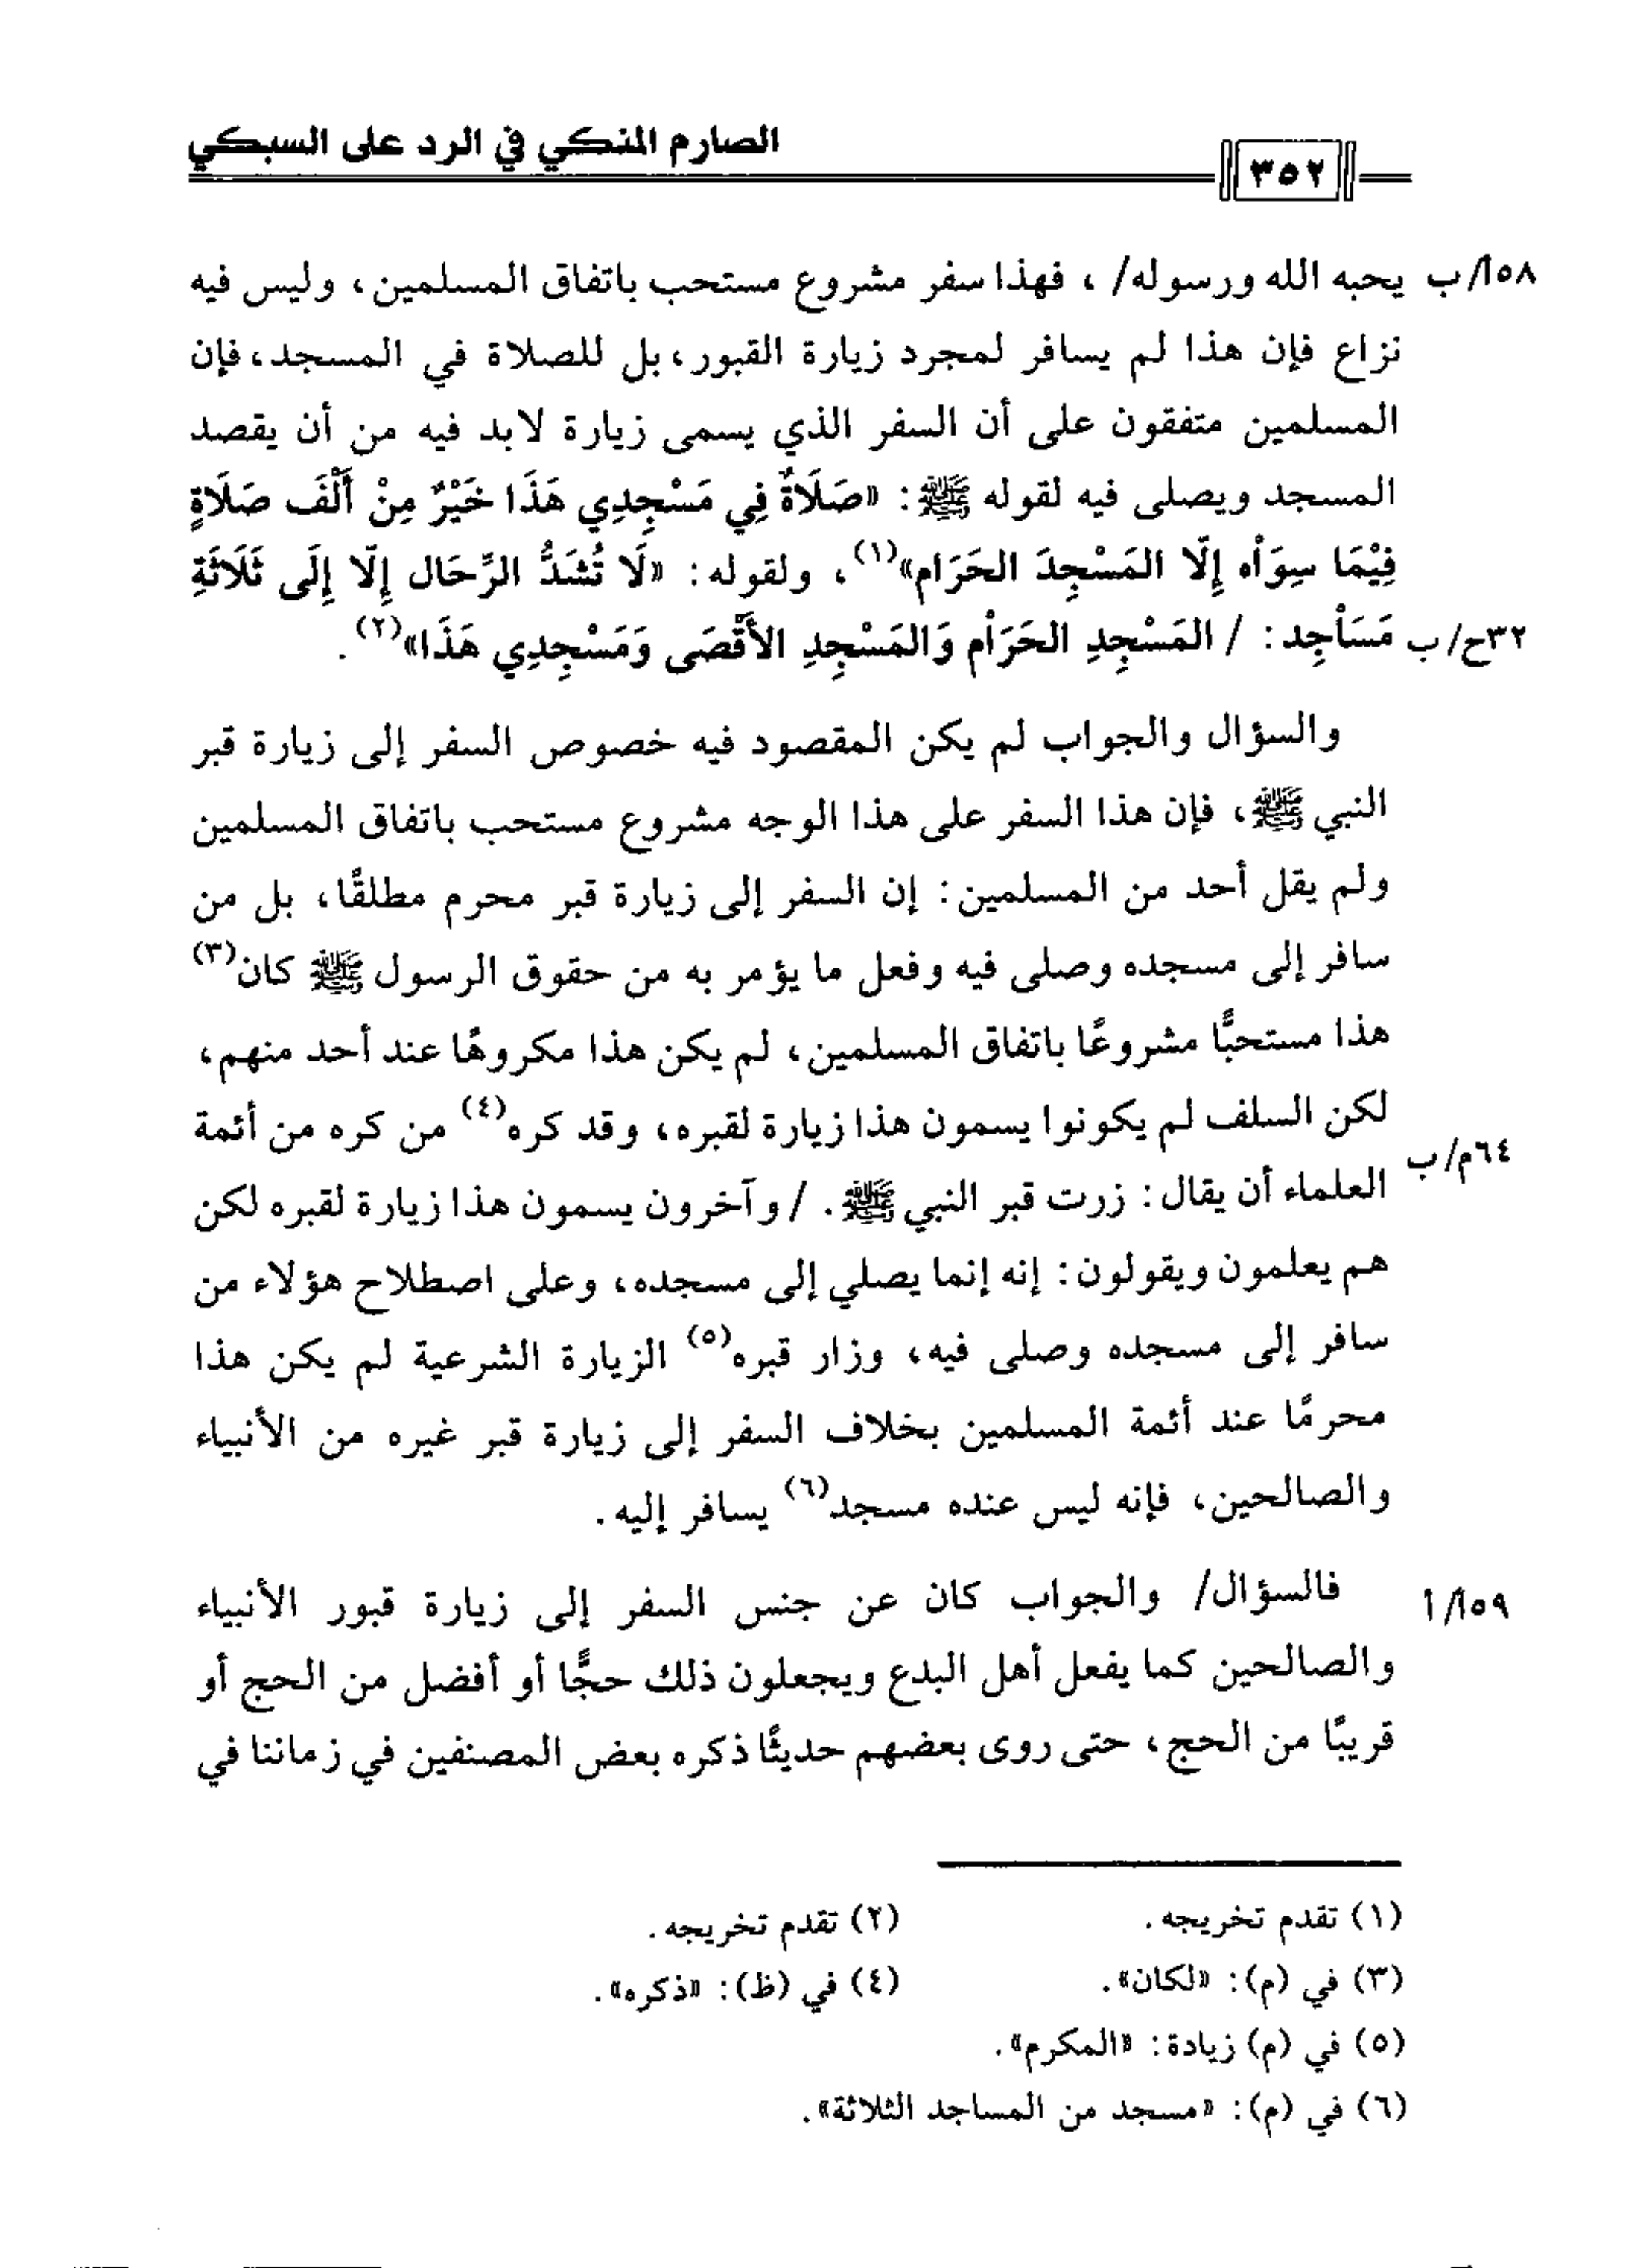 الصارم المنكي في الرد على السبكي
٣٥٢
١٥٨أ/ب يحبه الله ورسوله/ ، فهذا سفر مشروع مستحب باتفاق المسلمين، وليس فيه
نزاع فإن هذا لم يسافر لمجرد زيارة القبور، بل للصلاة في المسجد، فإن
المسلمين متفقون على أن السفر الذي يسمى زيارة لابد فيه من أن يقصد
المسجد ويصلى فيه لقوله ﷺ: «صَلَاةٌ فِي مَسْجِدِي هَذَا خَيْرٌ مِنْ أَلْفَ صَلَاةٍ
فِيْمَا سِوَاْه إِلّا المَسْجِدَ الحَرَام»(١)، ولقوله: «لَا تُشَدُّ الرِّحَال إِلّا إِلَى ثَلَاثَةِ
٣٢ح/ب مَسَاْجِد: / المَسْجِدِ الحَرَاْم وَالمَسْجِدِ الأَقْصَى وَمَسْجِدِي هَذَا»(٢).
والسؤال والجواب لم يكن المقصود فيه خصوص السفر إلى زيارة قبر
النبي ﷺ، فإن هذا السفر على هذا الوجه مشروع مستحب باتفاق المسلمين
ولم يقل أحد من المسلمين: إن السفر إلى زيارة قبر محرم مطلقًا، بل من
سافر إلى مسجده وصلى فيه وفعل ما يؤمر به من حقوق الرسول ﷺ كان(٣)
هذا مستحبًّا مشروعًا باتفاق المسلمين، لم يكن هذا مكروهًا عند أحد منهم،
لكن السلف لم يكونوا يسمون هذا زيارة لقبره، وقد كره(٤) من كره من أئمة
٦٤م/ب العلماء أن يقال: زرت قبر النبي ﷺ. / وآخرون يسمون هذا زيارة لقبره لكن
هم يعلمون ويقولون: إنه إنما يصلي إلى مسجده، وعلى اصطلاح هؤلاء من
سافر إلى مسجده وصلى فيه، وزار قبره(٥) الزيارة الشرعية لم يكن هذا
محرمًا عند أئمة المسلمين بخلاف السفر إلى زيارة قبر غيره من الأنبياء
والصالحين، فإنه ليس عنده مسجد(٦) يسافر إليه.
١٥٩أ/أ فالسؤال/ والجواب كان عن جنس السفر إلى زيارة قبور الأنبياء
والصالحين كما يفعل أهل البدع ويجعلون ذلك حجًّا أو أفضل من الحج أو
قريبًا من الحج، حتى روى بعضهم حديثًا ذكره بعض المصنفين في زماننا في
(١) تقدم تخريجه. (٢) تقدم تخريجه.
(٣) في (م): «لكان». (٤) في (ظ): «ذكره».
(٥) في (م) زيادة: «المكرم».
(٦) في (م): «مسجد من المساجد الثلاثة».